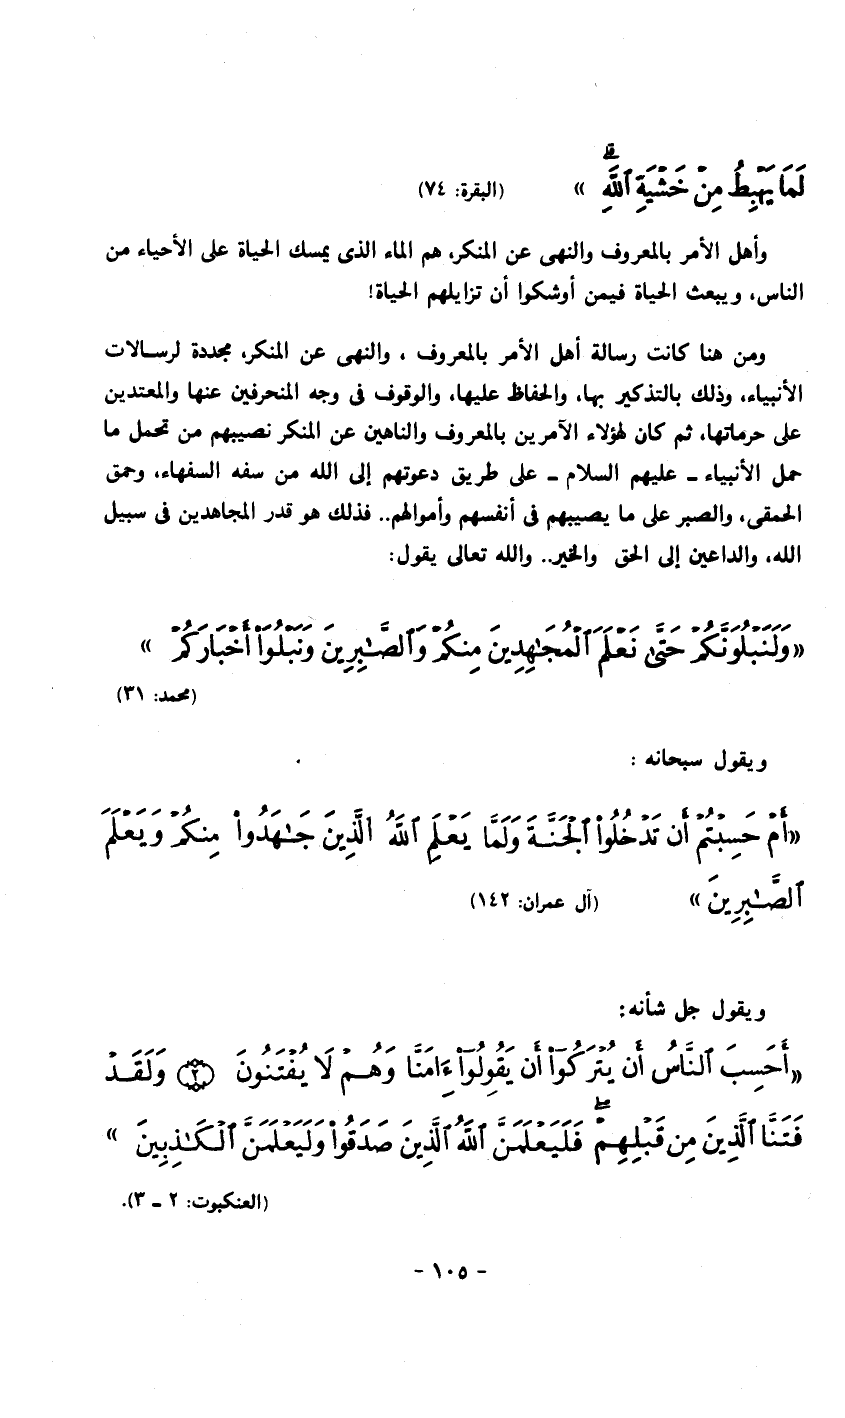 لَمَا يَهْبِطُ مِنْ خَشْيَةِ ٱللَّهِ ۗ » (البقرة: ٧٤)
وأهل الأمر بالمعروف والنهى عن المنكر، هم الماء الذى يمسك الحياة على الأحياء من
الناس، ويبعث الحياة فيمن أوشكوا أن تزايلهم الحياة!
ومن هنا كانت رسالة أهل الأمر بالمعروف ، والنهى عن المنكر، مجددة لرسالات
الأنبياء، وذلك بالتذكير بها، والحفاظ عليها، والوقوف فى وجه المنحرفين عنها والمعتدين
على حرماتها، ثم كان لهؤلاء الآمرين بالمعروف والناهين عن المنكر نصيبهم من تحمل ما
حمل الأنبياء ـ عليهم السلام ـ على طريق دعوتهم إلى الله من سفه السفهاء، وحمق
الحمقى، والصبر على ما يصيبهم فى أنفسهم وأموالهم.. فذلك هو قدر المجاهدين فى سبيل
الله، والداعين إلى الحق والخير.. والله تعالى يقول:
«وَلَنَبْلُوَنَّكُمْ حَتَّىٰ نَعْلَمَ ٱلْمُجَـٰهِدِينَ مِنكُمْ وَٱلصَّـٰبِرِينَ وَنَبْلُوَا۟ أَخْبَارَكُمْ »
(محمد: ٣١)
ويقول سبحانه :
«أَمْ حَسِبْتُمْ أَن تَدْخُلُوا۟ ٱلْجَنَّةَ وَلَمَّا يَعْلَمِ ٱللَّهُ ٱلَّذِينَ جَـٰهَدُوا۟ مِنكُمْ وَيَعْلَمَ
ٱلصَّـٰبِرِينَ » (آل عمران: ١٤٢)
ويقول جل شأنه:
«أَحَسِبَ ٱلنَّاسُ أَن يُتْرَكُوٓا۟ أَن يَقُولُوٓا۟ ءَامَنَّا وَهُمْ لَا يُفْتَنُونَ (٢) وَلَقَدْ
فَتَنَّا ٱلَّذِينَ مِن قَبْلِهِمْ ۖ فَلَيَعْلَمَنَّ ٱللَّهُ ٱلَّذِينَ صَدَقُوا۟ وَلَيَعْلَمَنَّ ٱلْكَـٰذِبِينَ »
(العنكبوت: ٢ ـ ٣).
- ١٠٥ -